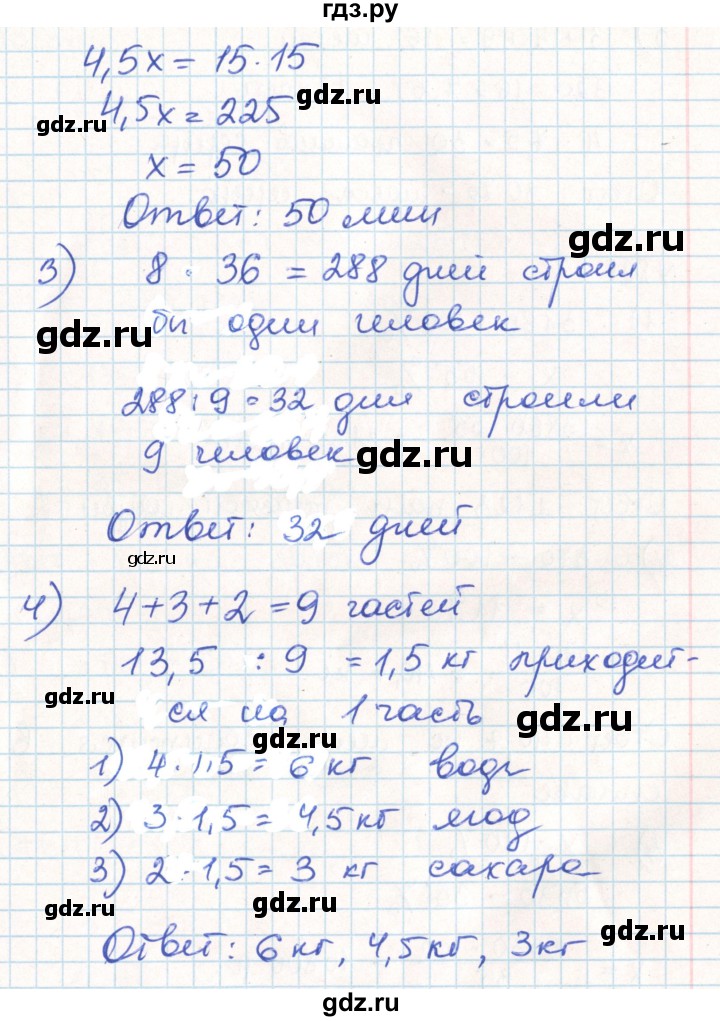 гдз.ру
4,5x = 15·15
gdz.ru
4,5x = 225
gdz.ru
x = 50
Ответ: 50 мин
gdz.ru
3) 8 · 36 = 288 дней строил
gdz.ru
бы один человек
288 : 9 = 32 дня строили
9 человек
gdz.ru
Ответ: 32 дней
gdz.ru
4) 4+3+2=9 частей
13,5 : 9 = 1,5 кг приходит-
gdz.ru
ся на 1 часть
gdz.ru
gdz.ru
1) 4·1,5 = 6 кг воды
2) 3·1,5 = 4,5 кг ягод
3) 2·1,5 = 3 кг сахара
gdz.ru
gdz.ru
Ответ: 6 кг, 4,5 кг, 3 кг
gdz.ru
gdz.ru